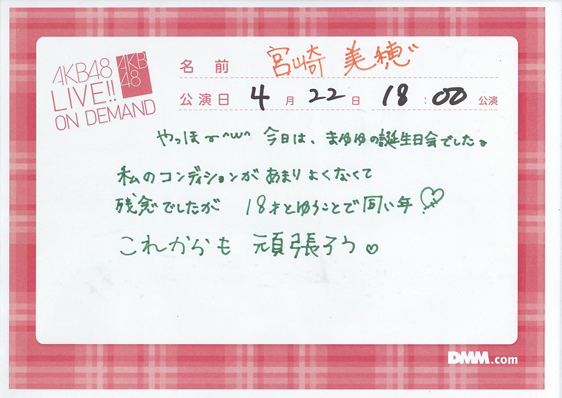 AKB48
LIVE!!
ON DEMAND
AKB
48
名前 宮崎 美穂
公演日 4月22日 18:00公演
やっほー^ω^ 今日は、まゆゆの誕生日会でした。
私のコンディションがあまりよくなくて
残念でしたが 18才とゆうことで同い年♡
これからも 頑張ろう♡
DMM.com